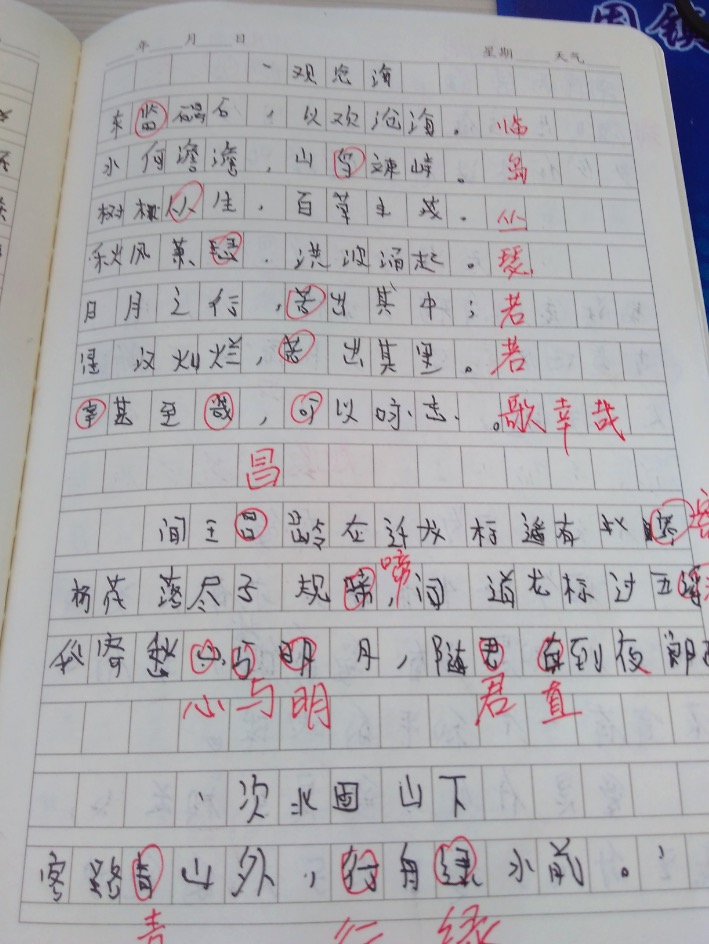 年 月 日 星期 天气
观沧海
东临碣石，以观沧海。临
水何澹澹，山岛竦峙。岛
树木丛生，百草丰茂。丛
秋风萧瑟，洪波涌起。瑟
日月之行，若出其中；若
汉灿烂，若出其里。若
幸甚至哉，可以咏志。歌幸哉
昌
闻王昌龄左迁龙标遥有此
杨花落尽子规啼，闻道龙标过五溪
啼
我寄愁心与明月，随君直到夜郎西
心与明 君直
次北固山下
客路青山外，行舟绿水前。
青 行 绿